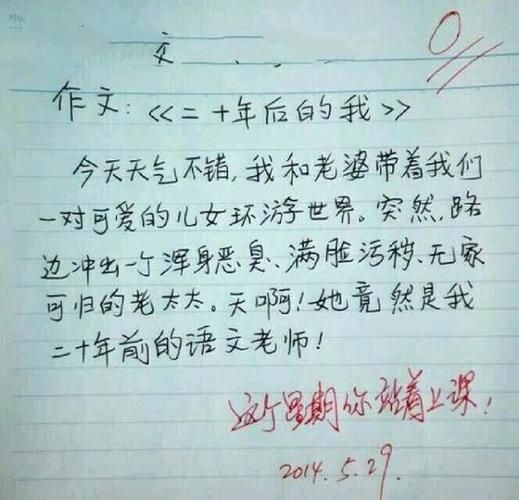 文
0
作文:《二十年后的我》
今天天气不错,我和老婆带着我们
一对可爱的儿女环游世界。突然,路
边冲出一个浑身恶臭、满脸污秽、无家
可归的老太太。天啊!她竟然是我
二十年前的语文老师!
这个星期你站着上课!
2014.5.29.